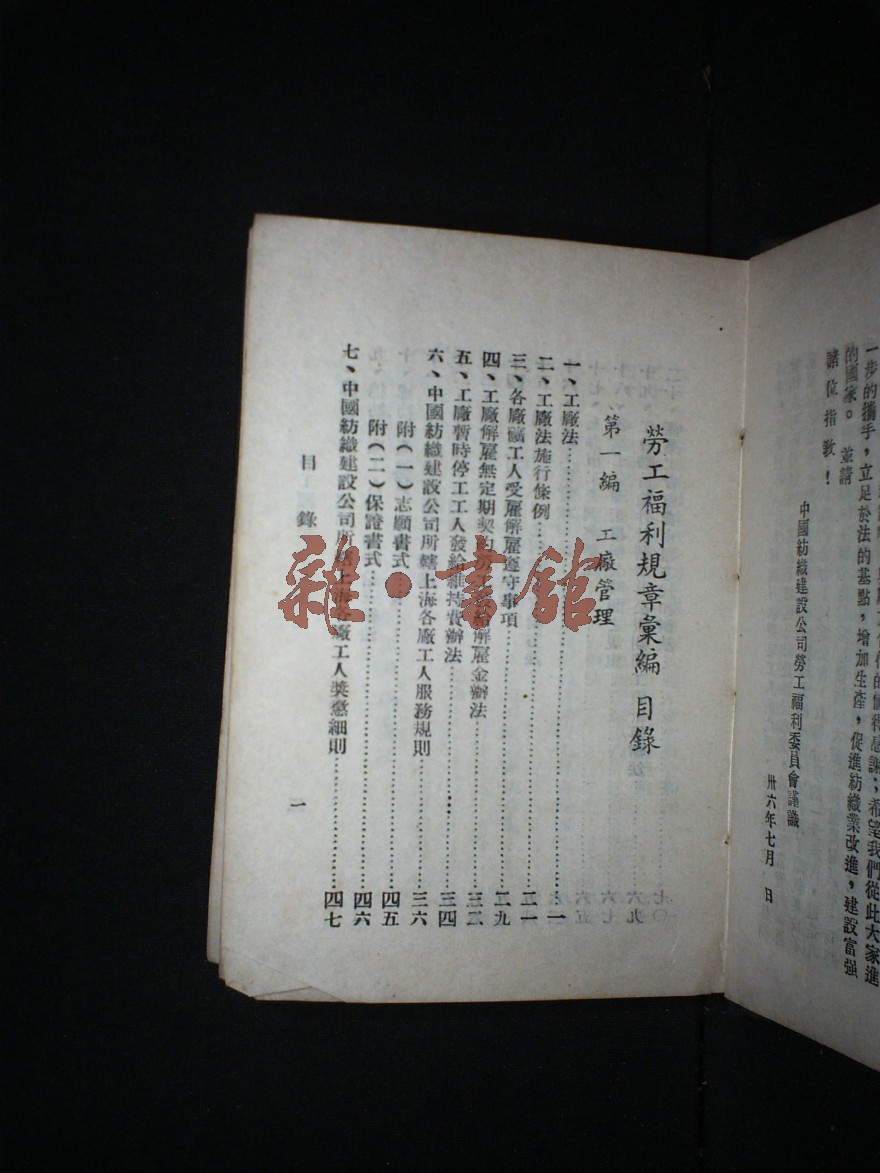 一步的攜手，立足於法的基點，增加生產，促進紡織業改進，建設富强
的國家。　並請
諸位指敎！
中國紡織建設公司勞工福利委員會謹識
卅六年七月　日
勞工福利規章彙編　目錄
第一編　工廠管理
一、工廠法……一
二、工廠法施行條例……二一
三、各廠礦工人受雇解雇遵守事項……二九
四、工廠解雇無定期契約勞工發給解雇金辦法……三二
五、工廠暫時停工工人發給維持費辦法……三四
六、中國紡織建設公司所轄上海各廠工人服務規則……三六
附（一）志願書式……四五
附（二）保證書式……四六
七、中國紡織建設公司所轄上海各廠工人獎懲細則……四七
目錄
一
雜·書館